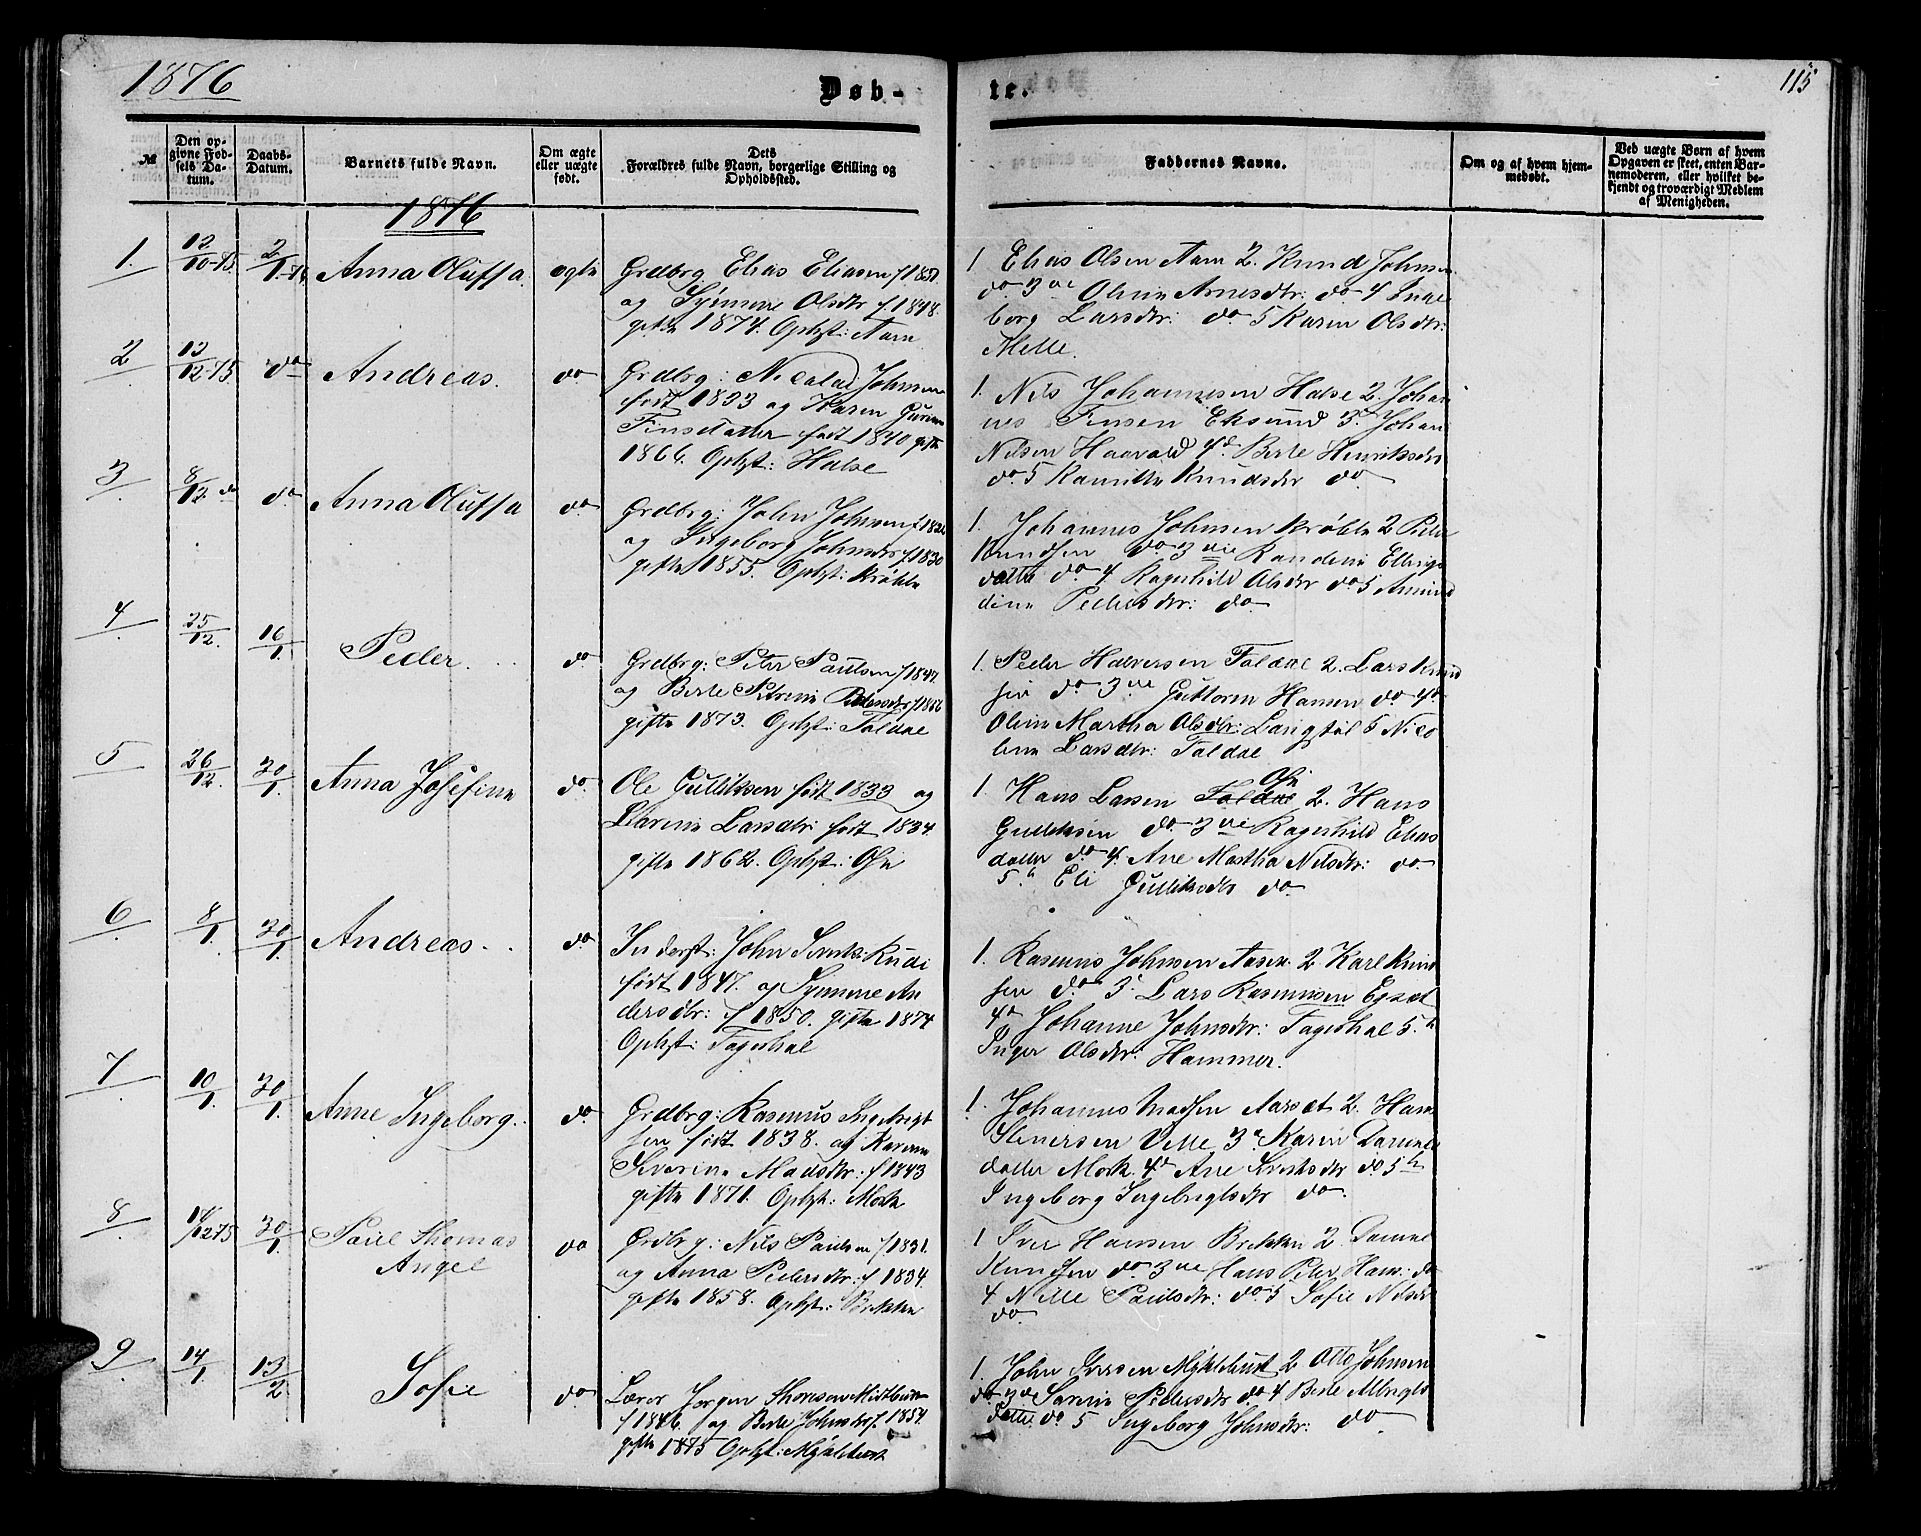 1876
Døb-
te.
115
№
Den op-
givne Fød-
sels Da-
tum.
Daabs-
Datum.
Barnets fulde Navn.
Om ægte
eller uægte
født.
Dets
Forældres fulde Navn, borgerlige Stilling og
Opholdssted.
Faddernes Navne.
Om og af hvem hjem-
medøbt.
Ved uægte Børn af hvem
Opgaven er skeet, enten Bar-
nemoderen, eller hvilket be-
kjendt og troværdigt Medlem
af Menigheden.
1876
1. 12/10-75 2/1-76 Anna Oluffa. ægte
Grdbrg Elias Eliasen f 1851.
og Synneve Olsdtr f. 1848.
gifte 1874. Ophst: Aam
1 Elias Olsen Aam 2. Knud Johnsen
do 3 Oline Arnesdtr: do 4 Inge
borg Larsdtr: do 5 Karen Olsdtr:
Melle.
2 12/12-75 do Andreas. do
Grdbrg: Nicolai Johnsen
født 1833 og Karen
Finsdatter født 1840 gifte
1866. Ophst: Halse
1. Nils Johannesen Halse 2. Johan
nes Finsen Eksund 3. Johan
Nilsen Haavold 4. Berte Henriksdtr
do 5 Knudsdtr do
3 8/12 do do Anna Oluffa do
Grdbrg: John Johnsen
og Ingeborg Johnsdtr f. 1830
gifte 1855. Ophst: Krøkle
1. Johannes Johnsen Krøkle 2 Peder
Knudsen do 3 Randine Ellings
datter do 4. Ragnhild Olsdtr do 5 Amund
dine Pedersdtr: do
4 25/12. 16/1. Peder. do
Grdbrg: Peter Paulsen f 1847.
og Berte Petrine Pedersdtr
gifte 1873. Ophst: Foldal
1. Peder Halversen Foldal 2. Lars Knud
sen do 3 Guttorm Hansen do 4
Oline Martha Olsdtr: Langstøl 5 Nico
line Larsdtr: Foldal
5 26/12. 30/1. Anna Josefine do
Ole Gulliksen født 1833 og
Larine Larsdtr: født 1834.
gifte 1862. Ophst: Øie
1. Hans Larsen Foldal Øie 2. Hans
Gulliksen do 3 Ragnhild Elias
datter do 4. Ane Martha Nilsdtr: do
5. Eli Gulliksdtr do
6 8/1. 30/1 Andreas. do
Inderst: John Sivertsen
født 1847. og Synneve An
dersdtr: f 1850. gifte 1874
Ophst: Fagerhol
1. Rasmus Johnsen Aasen 2 Karl Knud
sen do 3. Lars Rasmussen Egset
4 Johanne Johnsdtr: Fagerhol 5.
Inger Olsdtr: Hammer.
7 10/1. 30/1. Anne Ingeborg. do
Grdbrg: Rasmus Ingebrigt
sen født 1838. og Karen
Severine Madsdtr: f 1843
gifte 1871. Ophst: Mork
1. Johannes Madsen Aarset 2. Hans
Steinersen Velle 3 Karen Daniels
datter Mork. 4 Ane Sivertsdtr do 5
Ingeborg Ingebrigtsdtr do.
8 14/12 75 30/1. Paul Thomas
Angel do
Grdbrg: Nils Paulsen f 1831.
og Anna Pedersdtr: f 1834.
gifte 1858. Ophst: Brekke
1 Iver Hansen Brekke 2. Daniel
Knudsen do. 3 Hans Peter Hans: do
4 Nille Paulsdtr: do 5 Sofie Nilsdtr
do
9 14/1 13/2 Sofie do
Lærer Jørgen Thomsen
f 1846. og Berte Johnsdtr f. 1854.
gifte 1875 Ophst: Myklebust
1. John Iversen Myklebust 2 Otto Johnsen
do 3 Sarine Pedersdtr do 4 Berte Albrigts
datter do 5 Ingeborg Johnsdtr: do